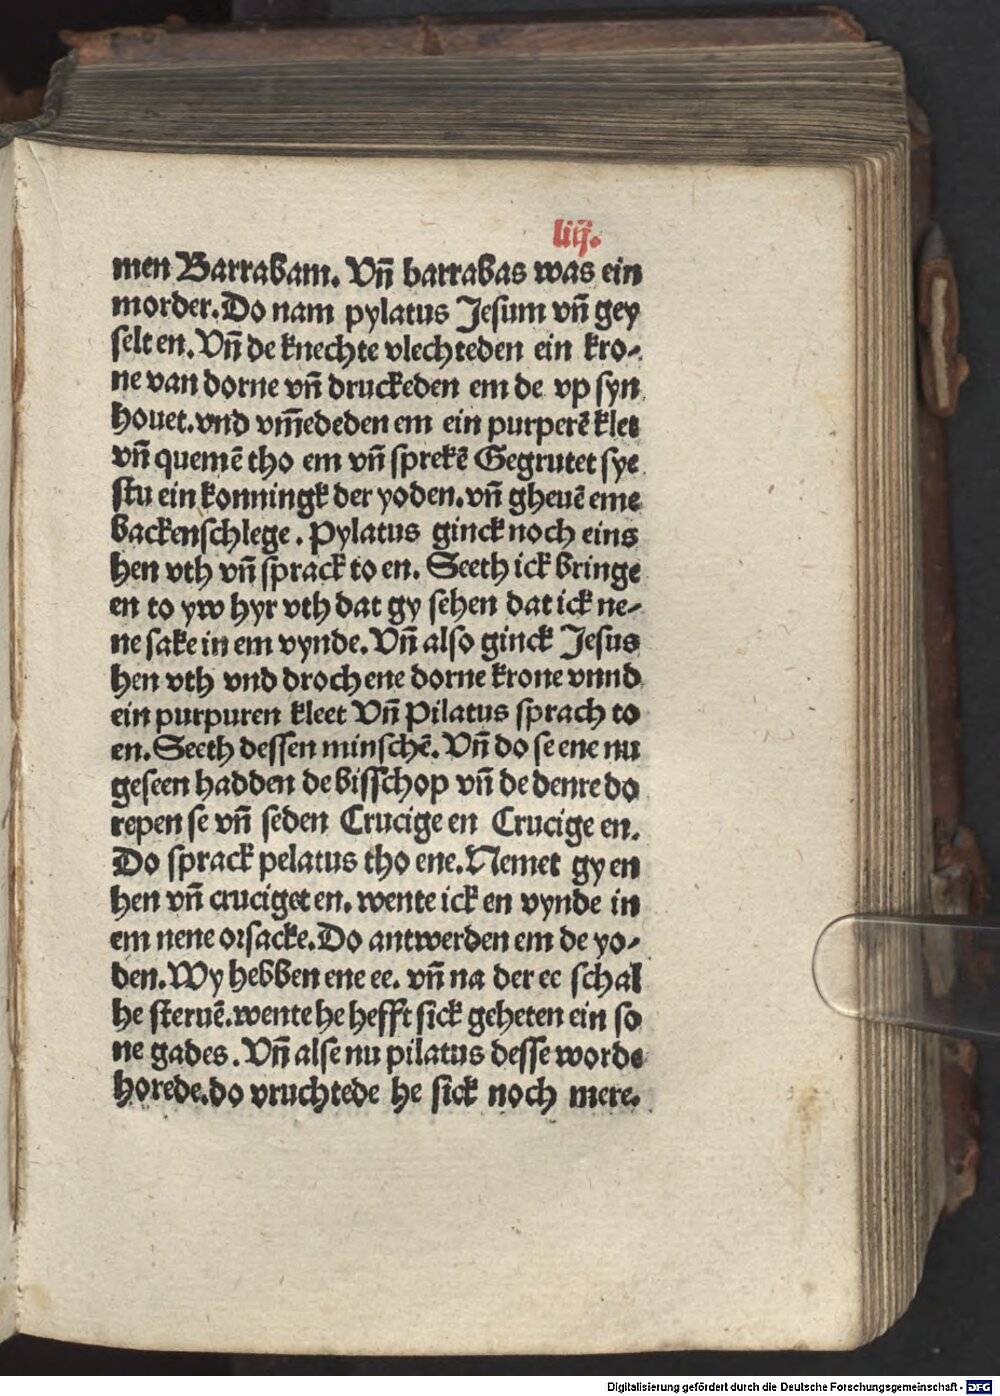 liij.
men Barrabam. Vn̄ barrabas was ein
morder. Do nam pylatus Jesum vn̄ gey
selt en. Vn̄ de knechte vlechteden ein kro-
ne van dorne vn̄ druckeden em de vp syn
houet. vnd vm̄ededen em ein purperē klet
vn̄ quemē tho em vn̄ sprekē Gegrutet sye
stu ein konningk der yoden. vn̄ gheuē eme
backenschlege. Pylatus ginck noch eins
hen vth vn̄ sprack to en. Seeth ick bringe
en to yw hyr vth dat gy sehen dat ick ne-
ne sake in em vynde. Vn̄ also ginck Jesus
hen vth vnd droch ene dorne krone vnnd
ein purpuren kleet Vn̄ Pilatus sprach to
en. Seeth dessen minschē. Vn̄ do se ene nu
geseen hadden de bisschop vn̄ de denre do
repen se vn̄ seden Crucige en Crucige en.
Do sprack pelatus tho ene. Nemet gy en
hen vn̄ cruciget en. wente ick en vynde in
em nene orsacke. Do antwerden em de yo-
den. Wy hebben ene ee. vn̄ na der ee schal
he steruē. wente he hefft sick geheten ein so
ne gades. Vn̄ alse nu pilatus desse worde
horede. do vruchtede he sick noch mere.
Digitalisierung gefördert durch die Deutsche Forschungsgemeinschaft - DFG